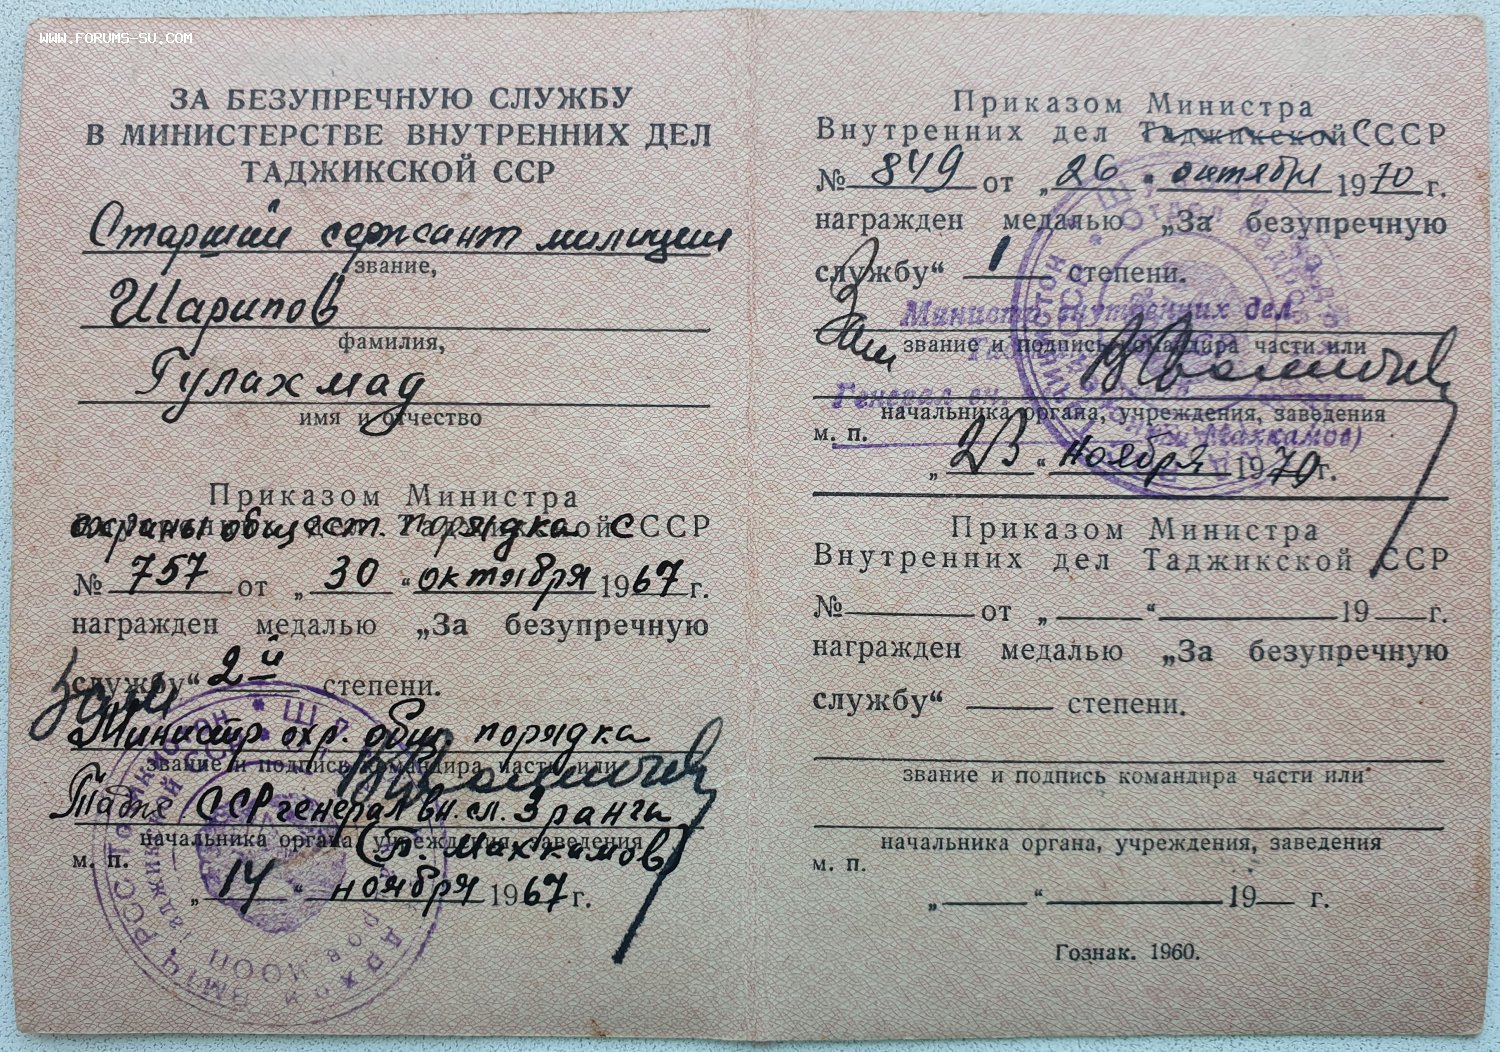 WWW.FORUMS-SU.COM
ЗА БЕЗУПРЕЧНУЮ СЛУЖБУ
В МИНИСТЕРСТВЕ ВНУТРЕННИХ ДЕЛ
ТАДЖИКСКОЙ ССР
Старший сержант милиции
звание,
Шарипов
фамилия,
Гулахмад
имя и отчество
Приказом Министра
охраны общест. порядка СССР
№ 757 от „ 30 “ октября 1967 г.
награжден медалью „За безупречную
службу“ 2й степени.
Зам
Министр охр. общ. порядка
звание и подпись командира части или
Тадж ССР генерал вн. сл. 3 ранга
начальника органа, учреждения, заведения
(Т. Махкамов)
м. п.
„ 14 “ ноября 1967 г.
Приказом Министра
Внутренних дел Таджикской СССР
№ 849 от „ 26 “ октября 1970 г.
награжден медалью „За безупречную
службу“ 1 степени.
Зам
Министр внутренних дел
звание и подпись командира части или
Генерал вн.
начальника органа, учреждения, заведения
Махкамов)
м. п.
„ 23 “ ноября 1970 г.
Приказом Министра
Внутренних дел Таджикской ССР
№ от „ “ 19 г.
награжден медалью „За безупречную
службу“ степени.
звание и подпись командира части или
начальника органа, учреждения, заведения
м. п.
„ “ 19 г.
Гознак. 1960.